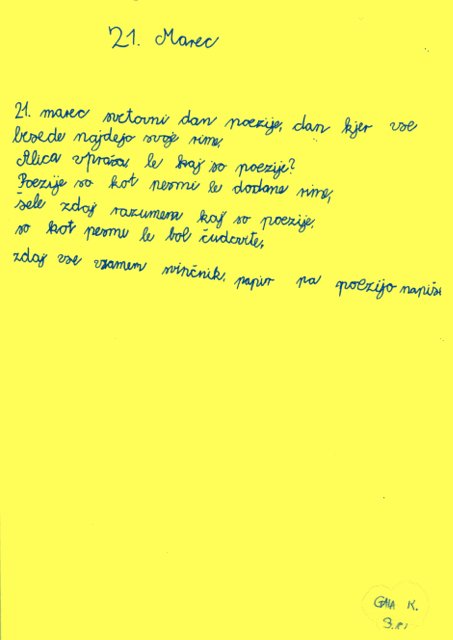 21. Marec
21. marec svetovni dan poezije, dan kjer vse
besede najdejo svoje rime.
Alica vpraša le kaj so poezije?
Poezije so kot pesmi le dodane rime,
šele zdaj razumem kaj so poezije,
so kot pesmi le bol čudovite,
zdaj vse vzamem svinčnik, papir pa poezijo napiše
GAIA K.